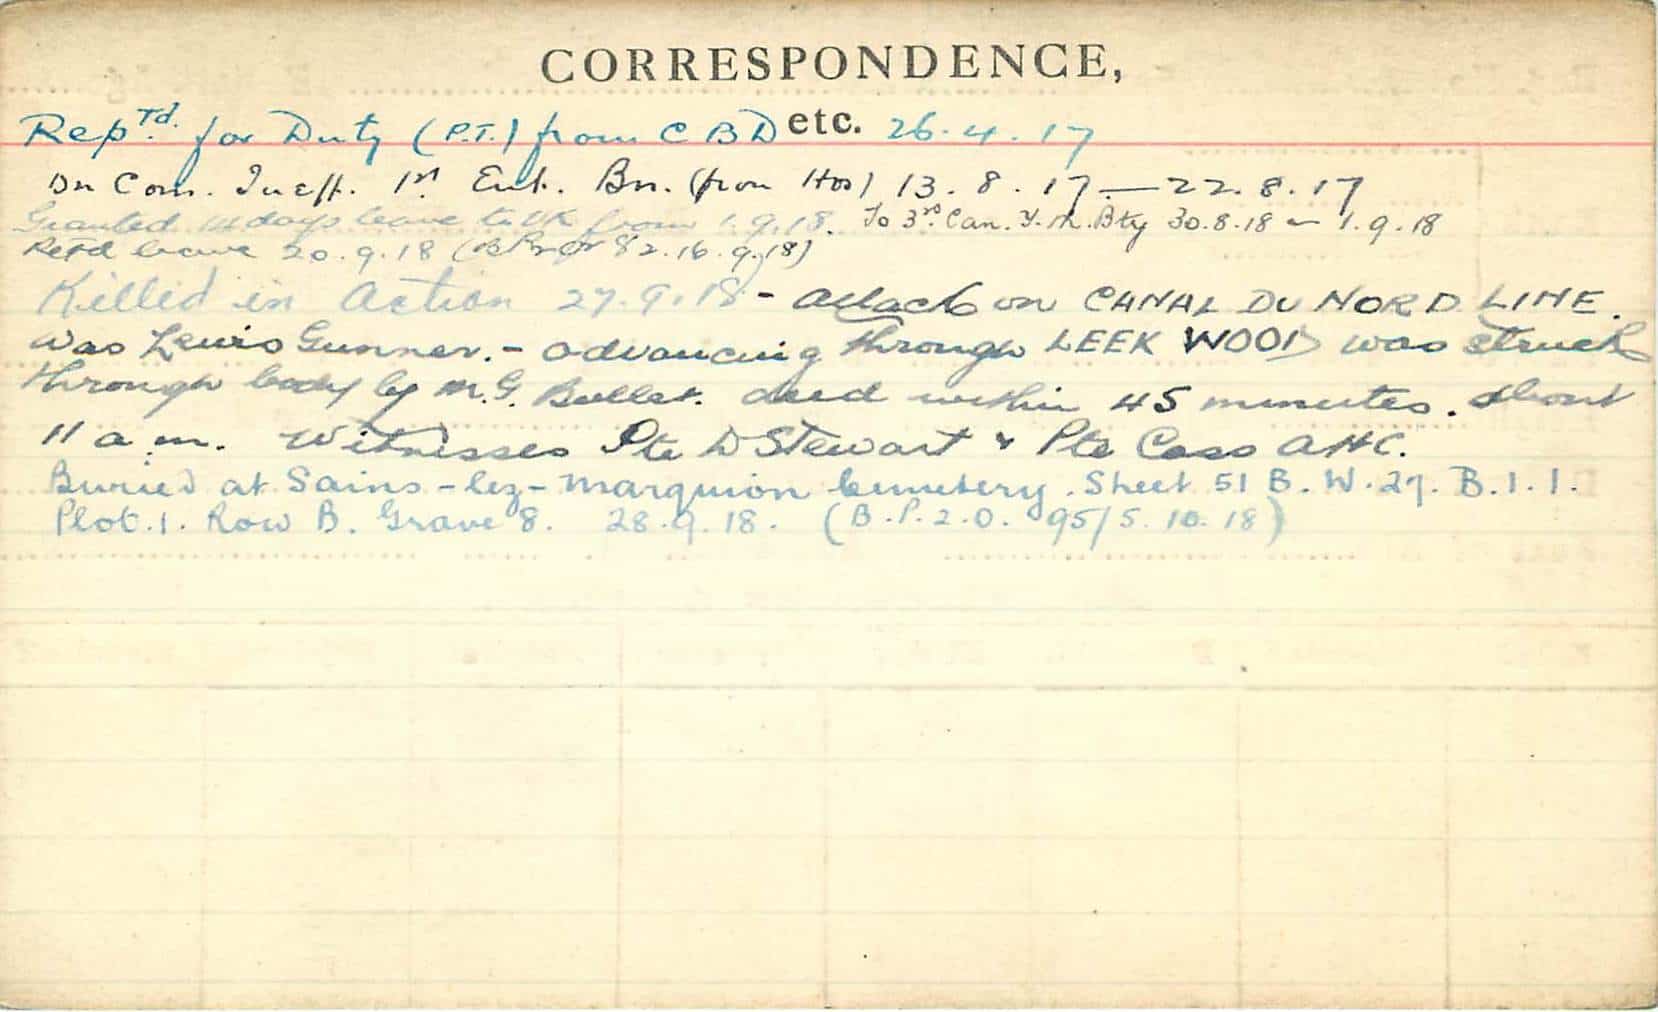 CORRESPONDENCE,
Rep.Td. for Duty (P.T.) from C B D etc. 26.4.17
On Com. Ineff. 1st Ent. Bn. (from Hos) 13.8.17 — 22.8.17
Granted 14 days leave to UK from 1.9.18. To 3rd Can. T.M. Bty 30.8.18 - 1.9.18
Retd leave 20.9.18 82.16.9.18)
Killed in Action 27.9.18 - attack on CANAL DU NORD LINE.
was Lewis Gunner. - advancing through LEEK WOOD was struck
through body by M.G. Bullet. died within 45 minutes. about
11 a.m. Witnesses Pte D Stewart & Pte Cass A H C.
Buried at Sains-lez-Marquion Cemetery. Sheet 51 B. W. 27. B.1.1.
Plot.1. Row B. Grave 8. 28.9.18. (B.P.2.O. 95/5.10.18)